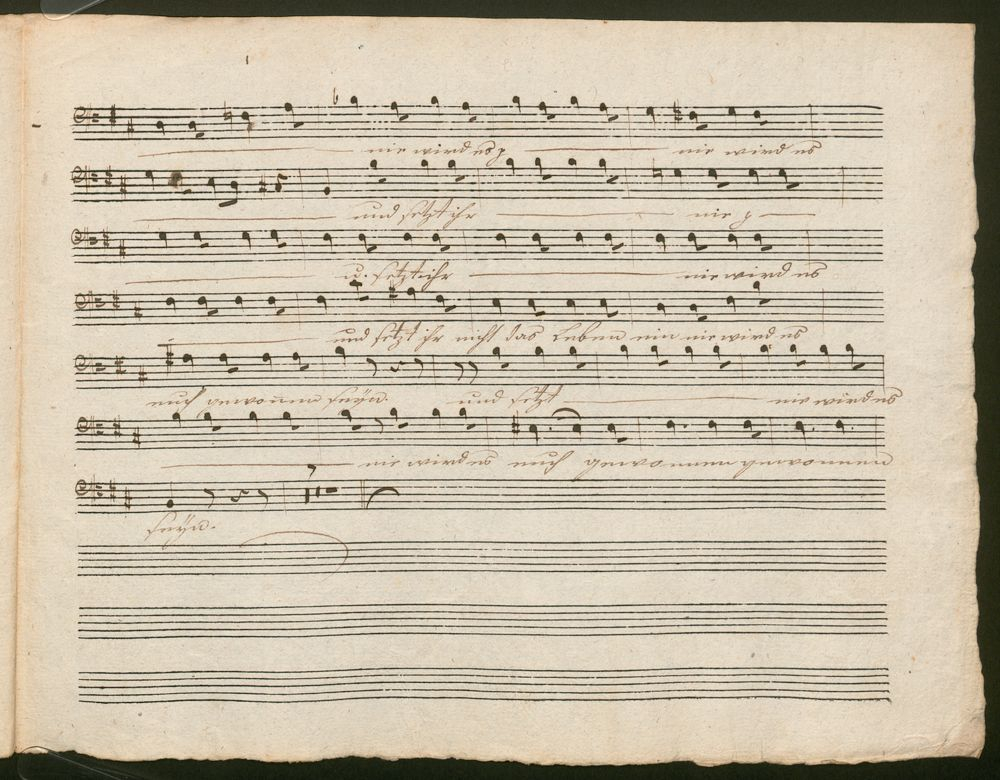 6
nie wird es p nie wird es
und setzt ihr nie p
u. setzt ihr nie wird es
und setzt ihr nicht das Leben ein nie wird es
euch gewonnen seÿn. und setzt nie wird es
nie wird es euch gewonnen gewonnen
seÿn.
7